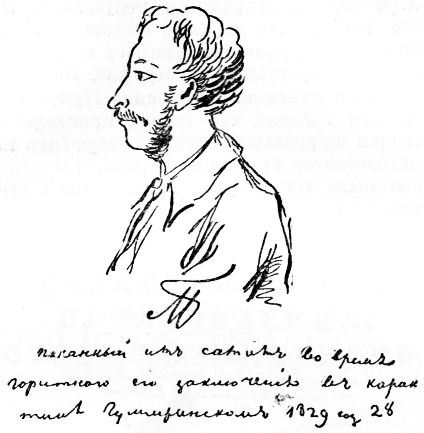 писанный имъ самимъ во время
горестного его заключенія въ каран
тинѣ 1829 28